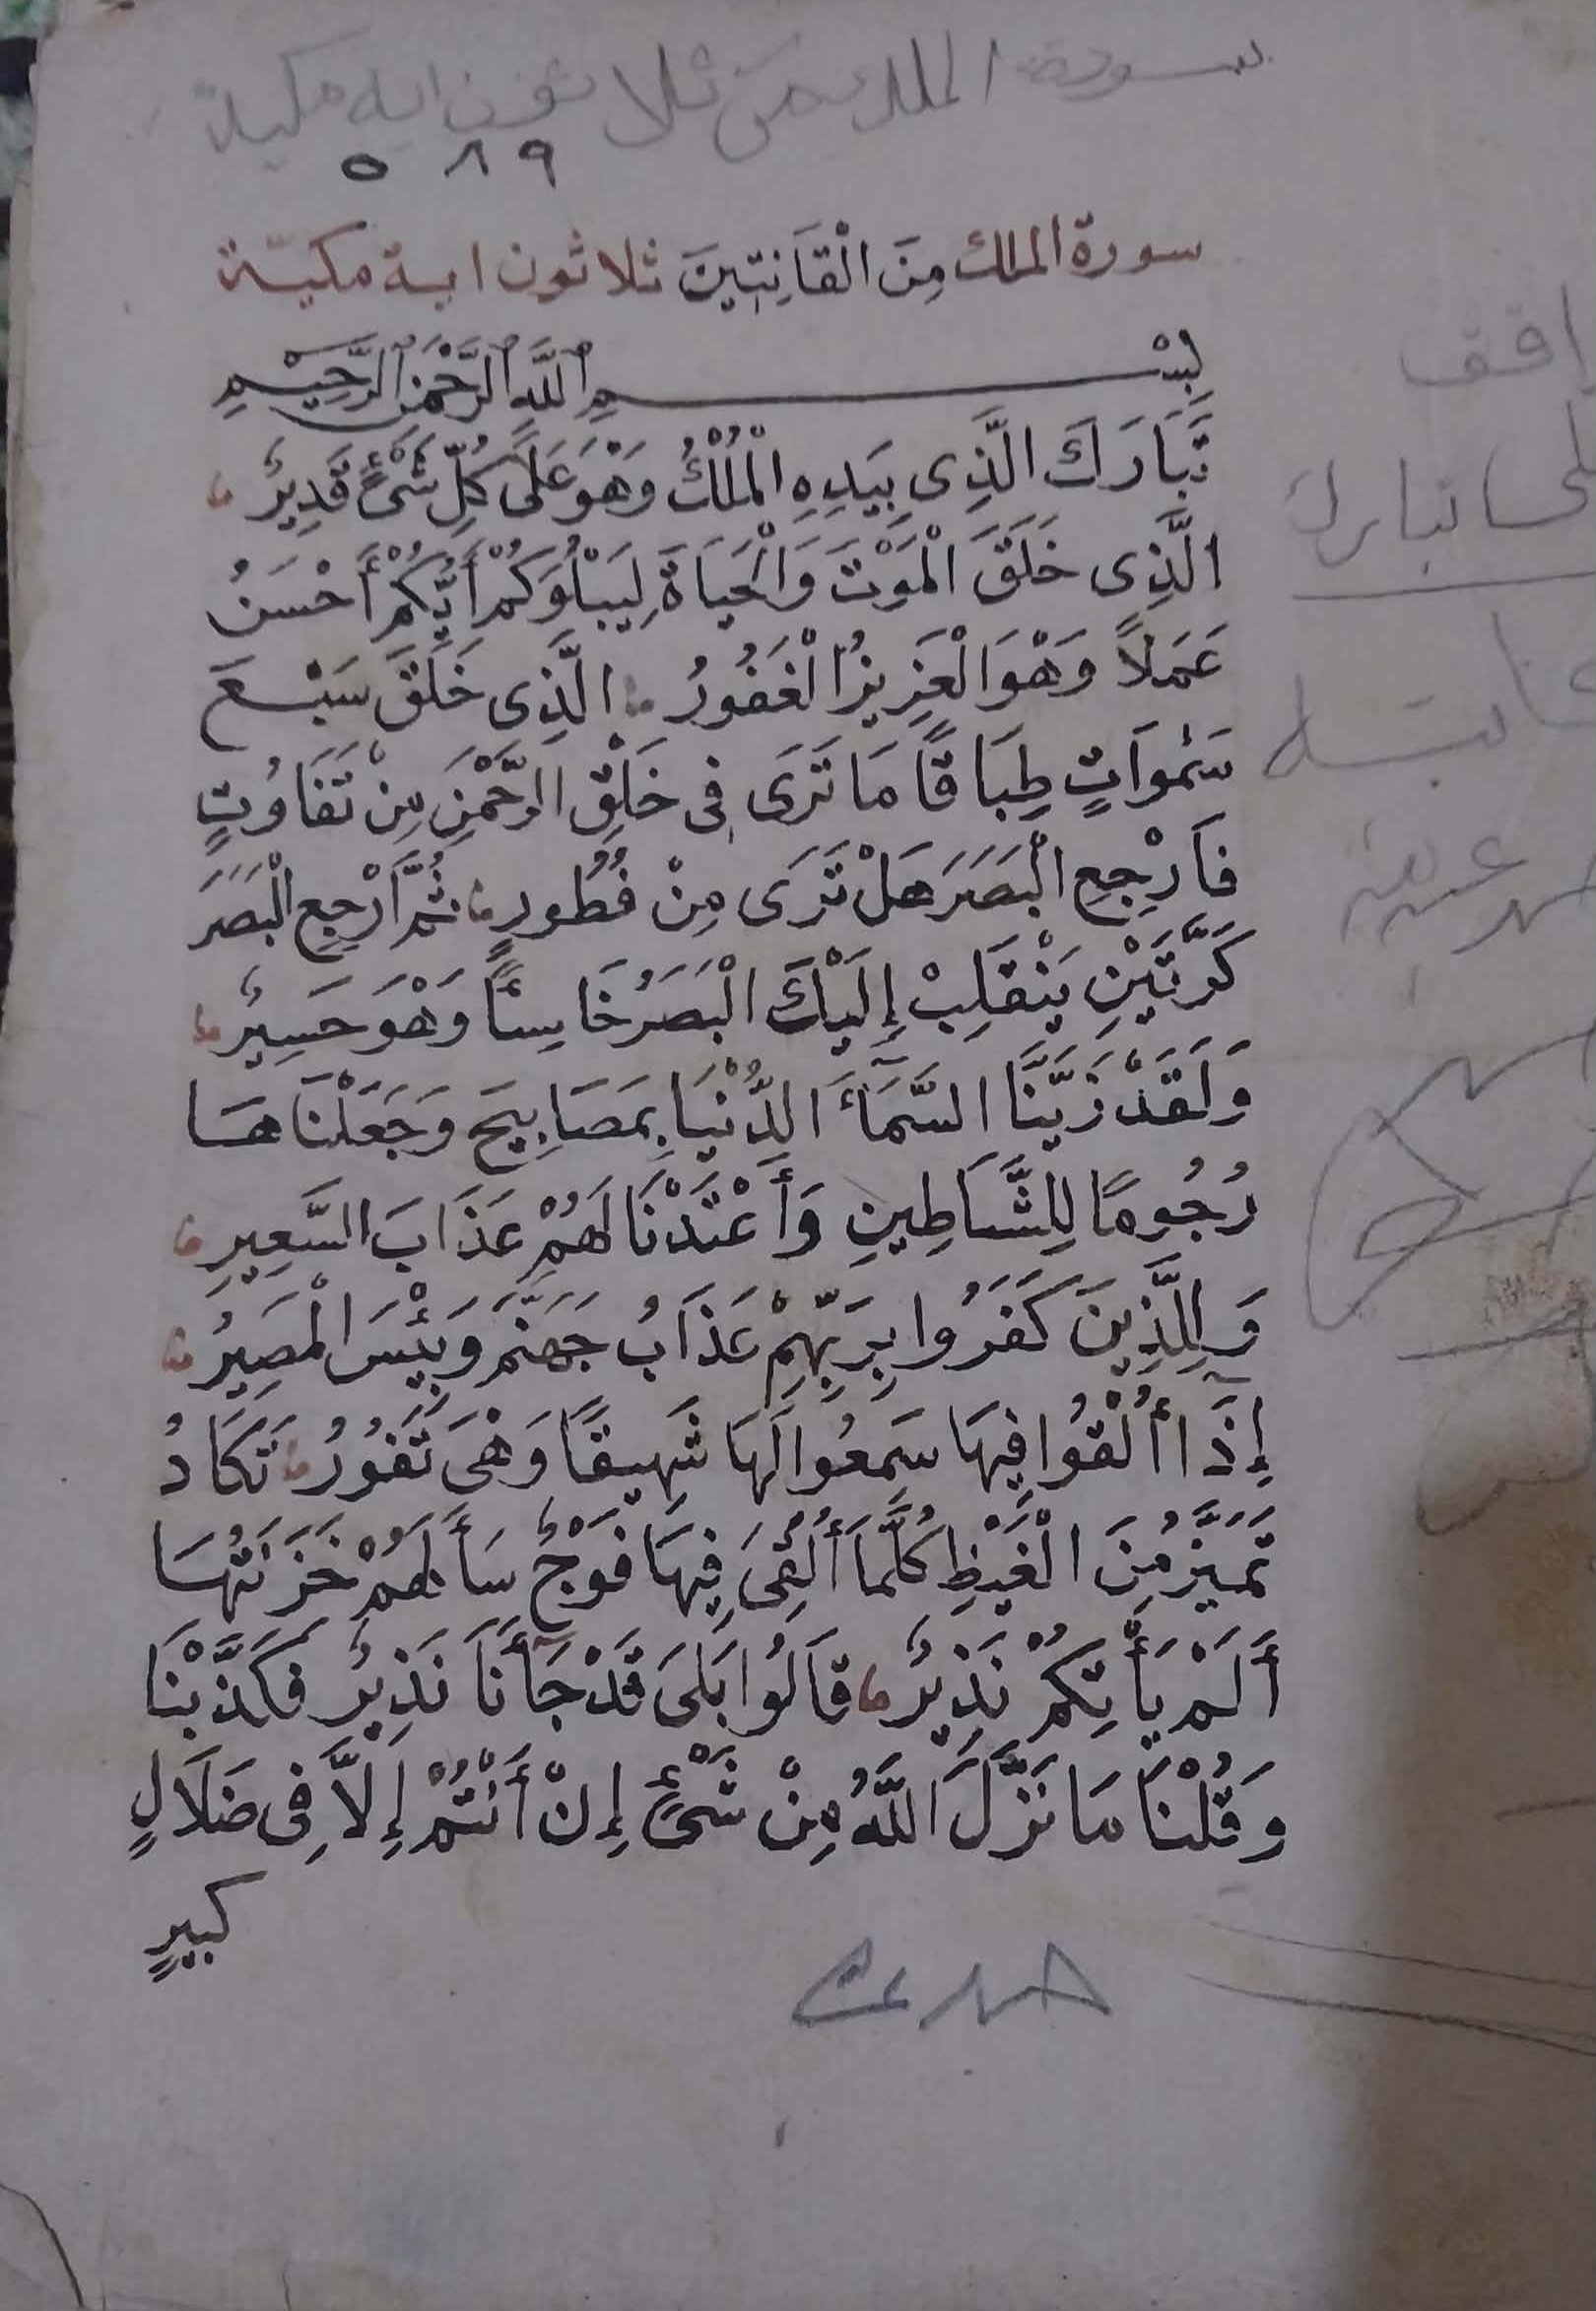 سورة الملك ثلاثون اية مكية
٥٨٩
سورة الملك مِنَ الْقَانِتِينَ ثلاثون اية مكيّة
بِسْمِ اللَّهِ الرَّحْمَنِ الرَّحِيمِ
تَبَارَكَ الَّذِى بِيَدِهِ الْمُلْكُ وَهْوَ عَلَى كُلِّ شَىْءٍ قَدِيرٌ
الَّذِى خَلَقَ الْمَوْتَ وَالْحَيَاةَ لِيَبْلُوَكُمْ أَيُّكُمْ أَحْسَنُ
عَمَلاً وَهْوَ الْعَزِيزُ الْغَفُورُ الَّذِى خَلَقَ سَبْعَ
سَمٰوَاتٍ طِبَاقًا مَا تَرَى فِى خَلْقِ الرَّحْمَنِ مِنْ تَفَاوُتٍ
فَارْجِعِ الْبَصَرَ هَلْ تَرَى مِنْ فُطُورٍ ثُمَّ ارْجِعِ الْبَصَرَ
كَرَّتَيْنِ يَنْقَلِبْ إِلَيْكَ الْبَصَرُ خَاسِئًا وَهْوَ حَسِيرٌ
وَلَقَدْ زَيَّنَّا السَّمَآءَ الدُّنْيَا بِمَصَابِيحَ وَجَعَلْنَاهَا
رُجُومًا لِلشَّيَاطِينِ وَأَعْتَدْنَا لَهُمْ عَذَابَ السَّعِيرِ
وَلِلَّذِينَ كَفَرُوا بِرَبِّهِمْ عَذَابُ جَهَنَّمَ وَبِئْسَ الْمَصِيرُ
إِذَآ أُلْقُوا فِيهَا سَمِعُوا لَهَا شَهِيقًا وَهْىَ تَفُورُ تَكَادُ
تَمَيَّزُ مِنَ الْغَيْظِ كُلَّمَا أُلْقِىَ فِيهَا فَوْجٌ سَأَلَهُمْ خَزَنَتُهَا
أَلَمْ يَأْتِكُمْ نَذِيرٌ قَالُوا بَلَى قَدْ جَآءَنَا نَذِيرٌ فَكَذَّبْنَا
وَقُلْنَا مَا نَزَّلَ اللَّهُ مِنْ شَىْءٍ إِنْ أَنْتُمْ إِلاَّ فِى ضَلَالٍ
كبيرٍ
تبارك